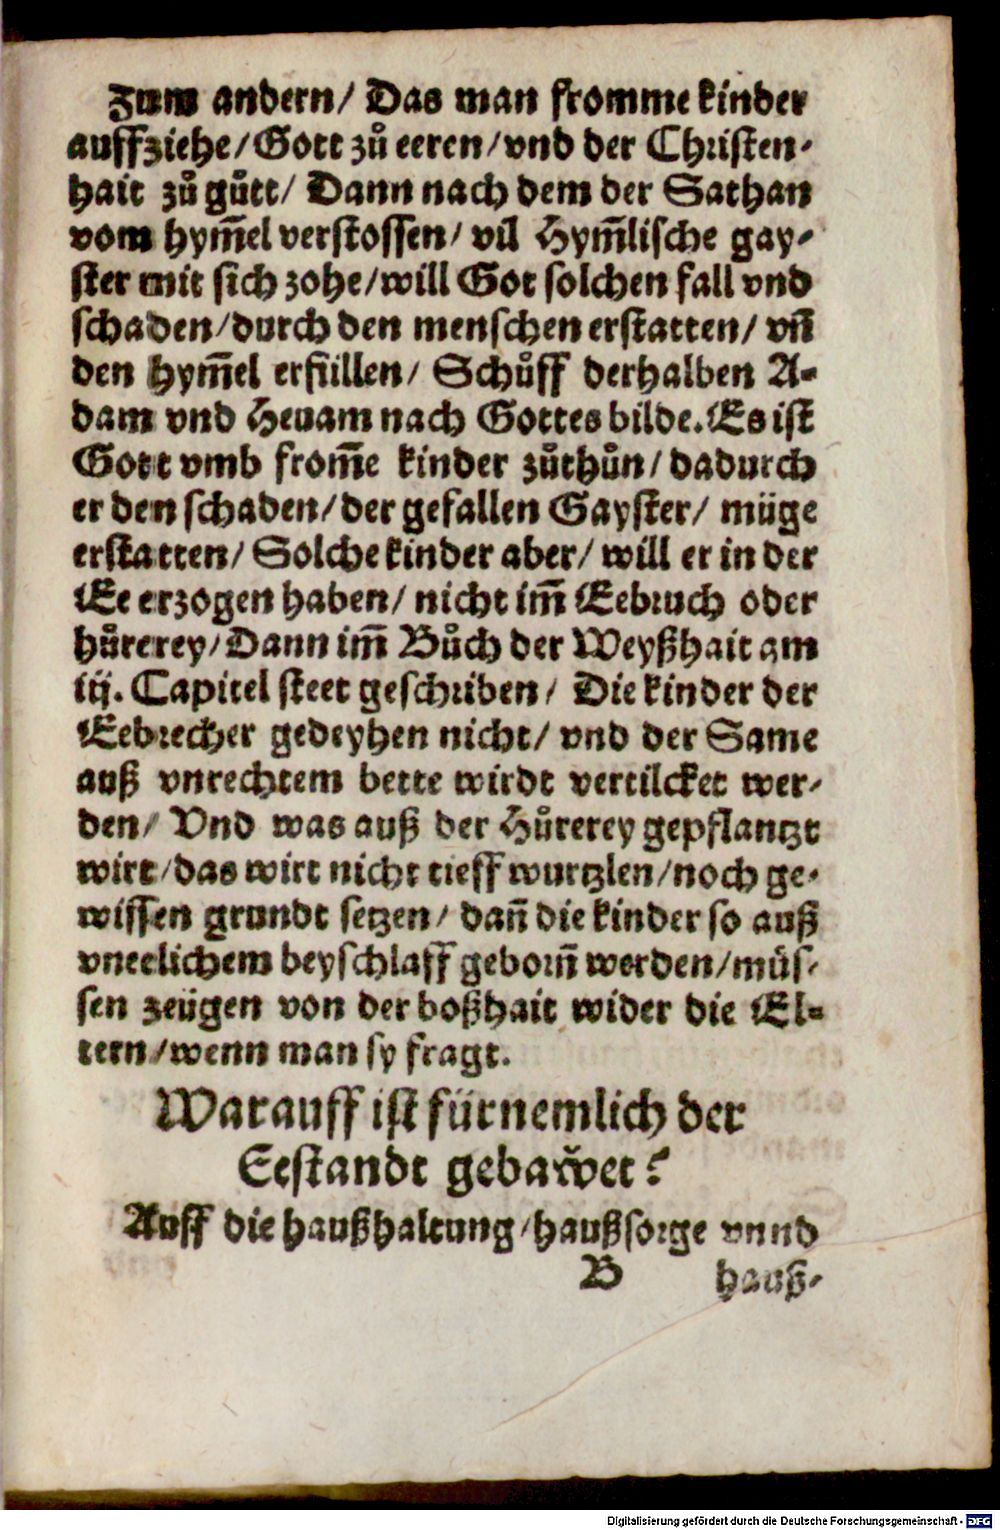 Zum andern/ Das man fromme kinder
auffziehe/Gott zů eeren/vnd der Christen-
hait zů gůtt/ Dann nach dem der Sathan
vom hym̃el verstossen/ vil Hym̃lische gay-
ster mit sich zohe/will Got solchen fall vnd
schaden/durch den menschen erstatten/ vñ
den hym̃el erfüllen/ Schůff derhalben A-
dam vnd Heuam nach Gottes bilde. Es ist
Gott vmb from̃e kinder zůthůn/dadurch
er den schaden/der gefallen Gayster/ müge
erstatten/ Solche kinder aber/ will er in der
Ee erzogen haben/ nicht im̃ Eebruch oder
hůrerey/Dann im̃ Bůch der Weyßhait am
iij. Capitel steet geschriben/ Die kinder der
Eebrecher gedeyhen nicht/ vnd der Same
auß vnrechtem bette wirdt vertilcket wer-
den/ Vnd was auß der Hůrerey gepflantzt
wirt/das wirt nicht tieff wurtzlen/noch ge-
wissen grundt setzen/ dañ die kinder so auß
vneelichem beyschlaff geborñ werden/müs-
sen zeügen von der boßhait wider die El-
tern/wenn man sy fragt.
Warauff ist fürnemlich der
Eestandt gebawet?
Auff die haußhaltung/haußsorge vnnd
B hauß-
Digitalisierung gefördert durch die Deutsche Forschungsgemeinschaft - DFG